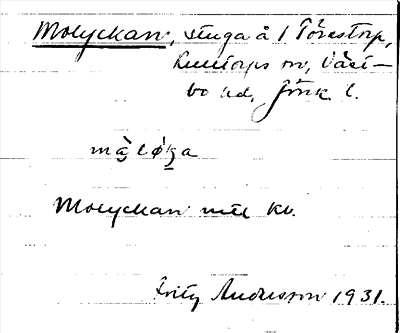 Molyckan, stuga å 1 Törestorp,
Kulltorps sn, Väst-
bo hd, Jönk. l.
Molyckan
Fritz Andersson 1931.